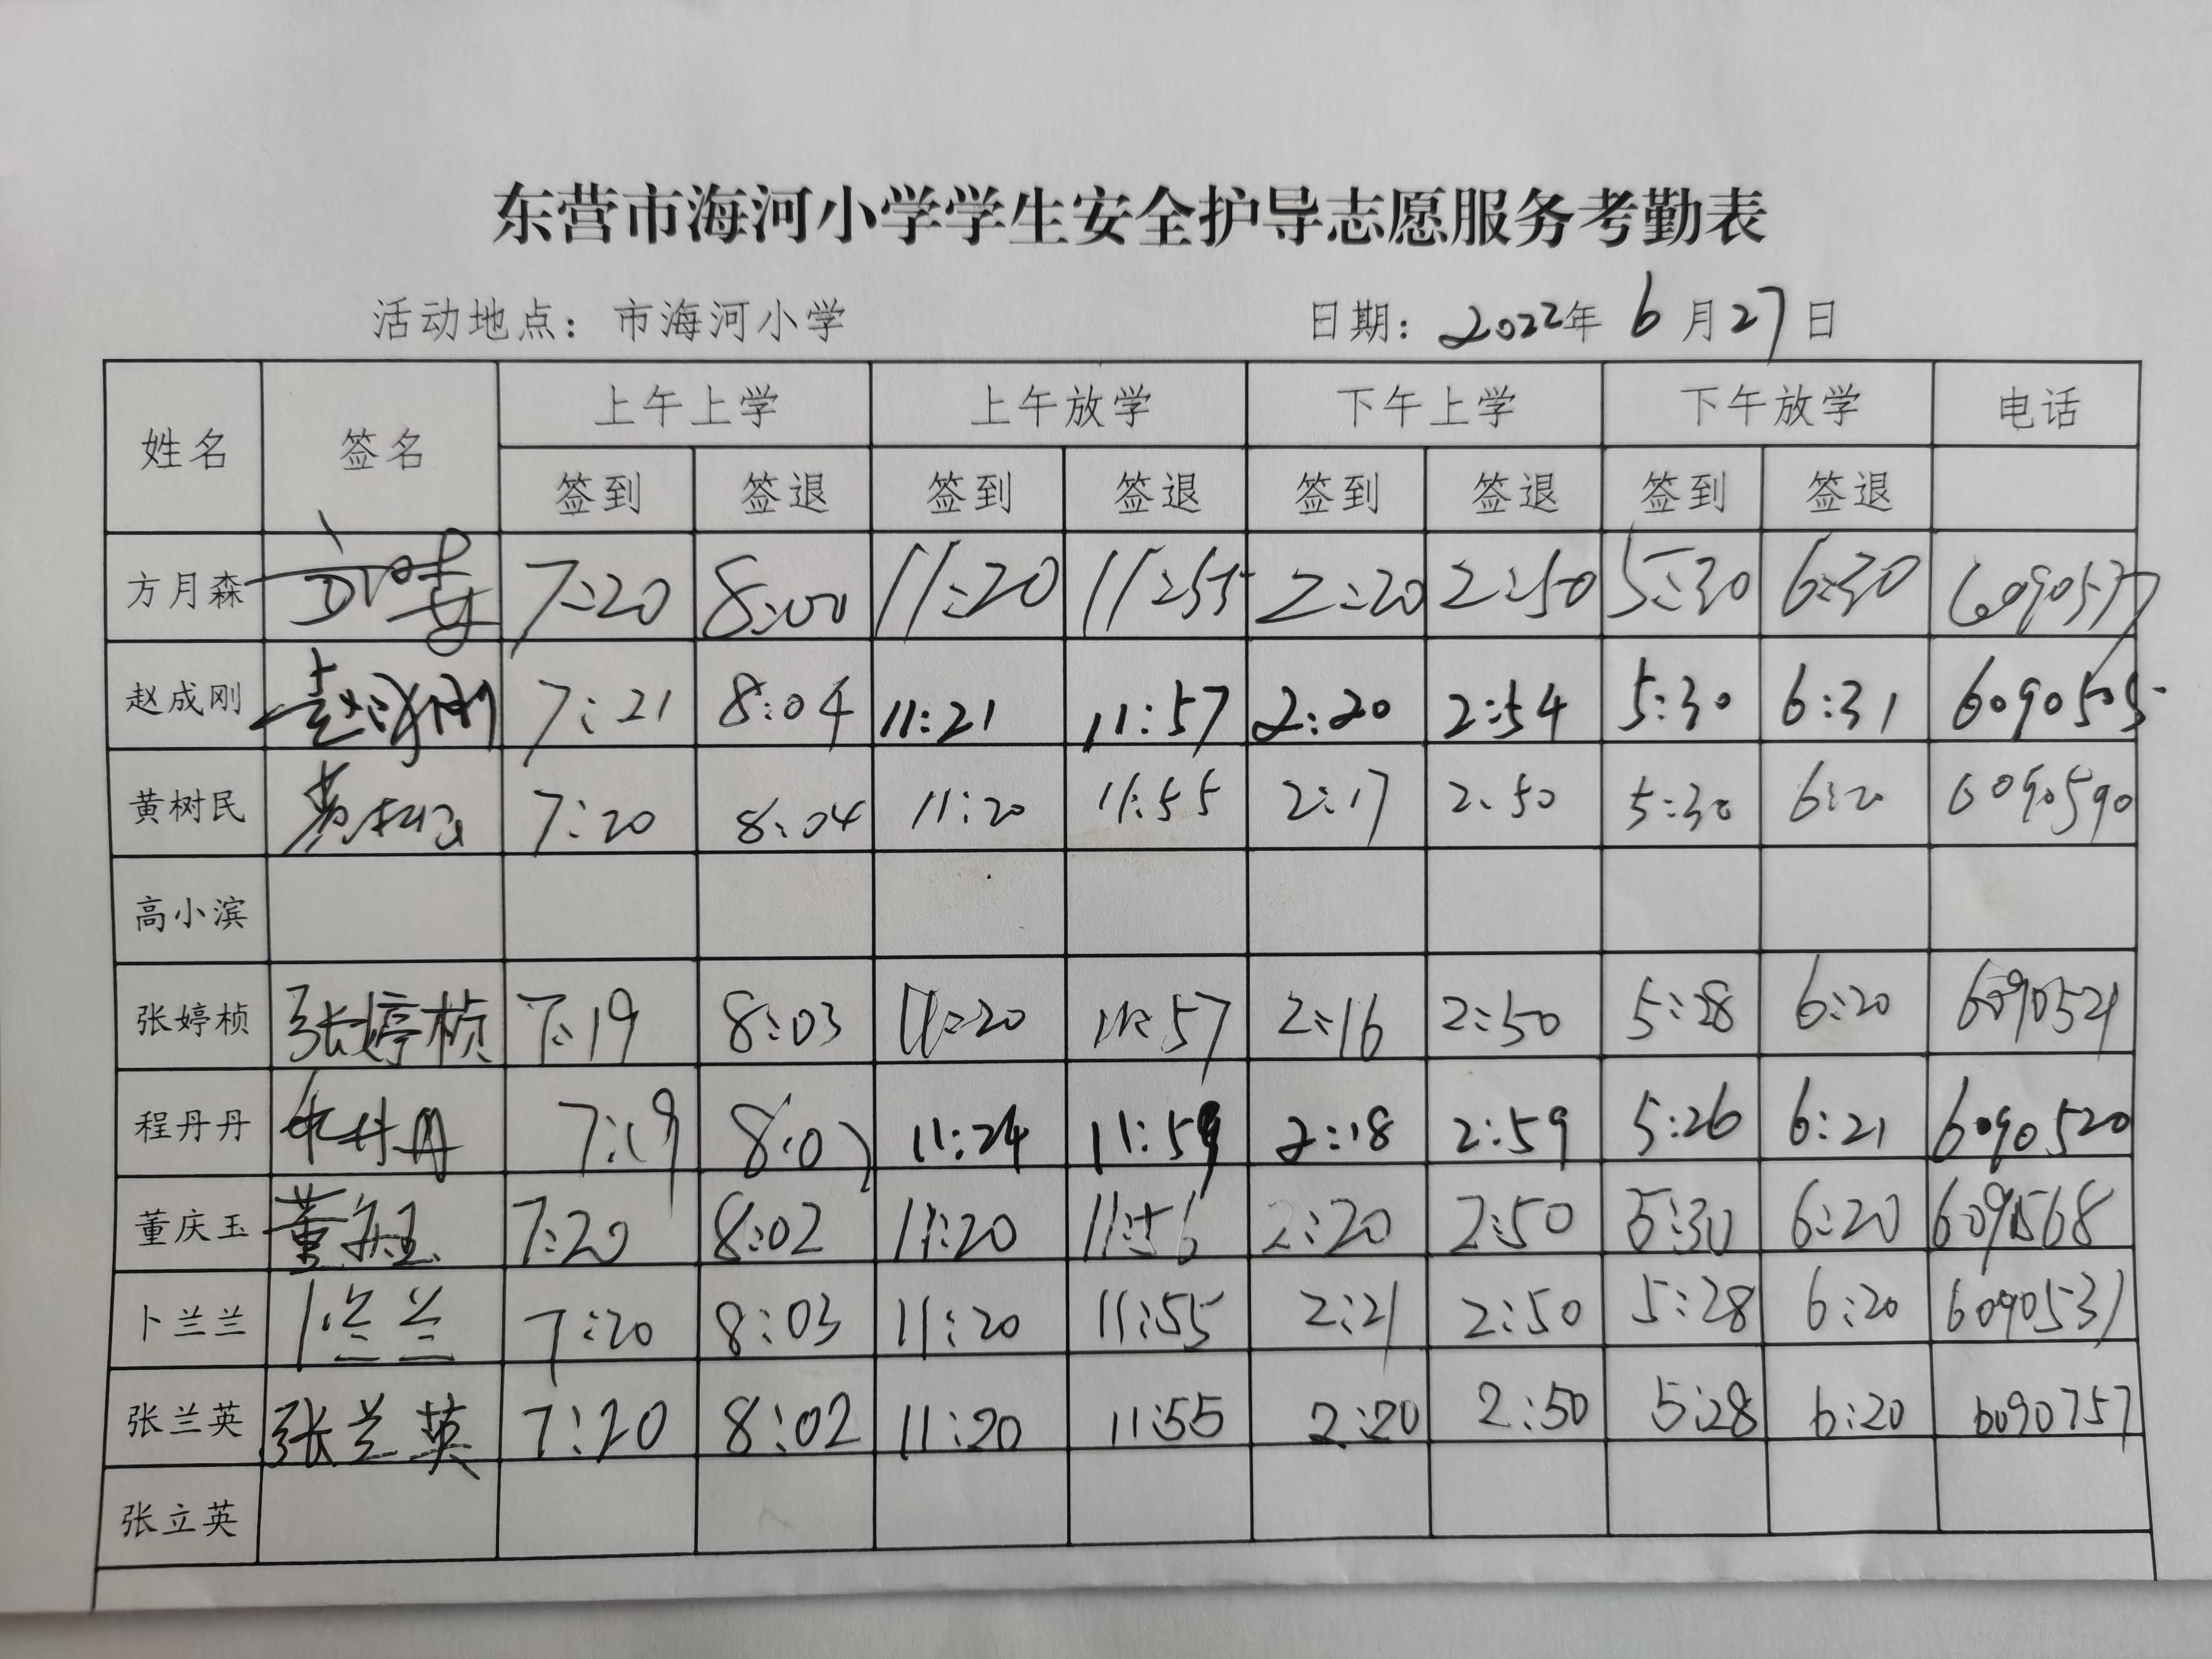 东营市海河小学学生安全护导志愿服务考勤表
活动地点：市海河小学 日期：2022年6月27日
姓名 签名 上午上学 上午放学 下午上学 下午放学 电话
签到 签退 签到 签退 签到 签退 签到 签退
方月森 7:20 8:00 11:20 11:55 2:20 2:50 5:30 6:30 6090577
赵成刚 赵成刚 7:21 8:04 11:21 11:57 2:20 2:54 5:30 6:31 6090505
黄树民 黄树民 7:20 8:04 11:20 11:55 2:17 2:50 5:30 6:20 6090590
高小滨
张婷桢 张婷桢 7:19 8:03 11:20 11:57 2:16 2:50 5:28 6:20 6090521
程丹丹 程丹丹 7:19 11:24 11:59 2:18 2:59 5:26 6:21 6090520
董庆玉 董庆玉 7:20 8:02 11:20 11:56 2:20 2:50 5:30 6:20
卜兰兰 卜兰兰 7:20 8:03 11:20 11:55 2:21 2:50 5:28 6:20 6090531
张兰英 张兰英 7:20 8:02 11:20 11:55 2:20 2:50 5:28 6:20 6090757
张立英